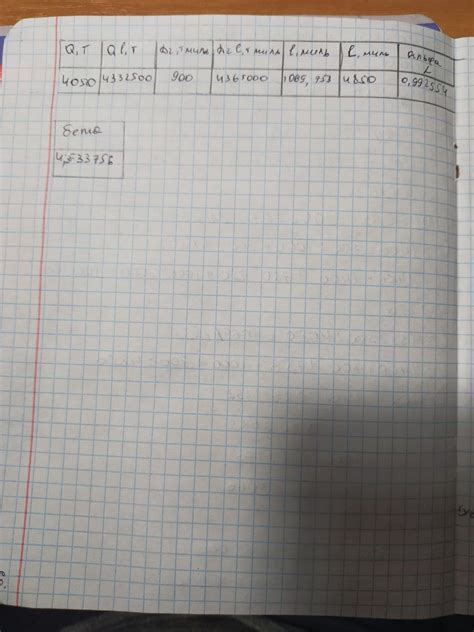 Q, т Ql, т Дч, т миль Дч l, т миль l, миль L, миль альфа L
4050 4332500 900 4365000 1069,753 4850 0,992554
бета
4,533756